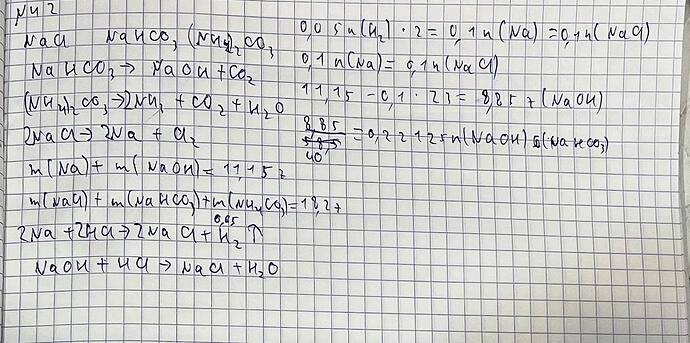 №2
NaCl NaHCO₃ (NH₄)₂CO₃
NaHCO₃ → NaOH + CO₂
(NH₄)₂CO₃ → 2NH₃ + CO₂ + H₂O
2NaCl → 2Na + Cl₂
m(Na) + m(NaOH) = 11,15 г
m(NaCl) + m(NaHCO₃) + m(NH₄CO₃) = 18,2 г
0,05
2Na + 2HCl → 2NaCl + H₂ ↑
NaOH + HCl → NaCl + H₂O
0,05 n(H₂) · 2 = 0,1 n(Na) = 0,1 n(NaCl)
0,1 n(Na) = 0,1 n(NaCl)
11,15 - 0,1 · 23 = 8,85 г (NaOH)
8,85
= 0,22125 n(NaOH) (NaHCO₃)
40